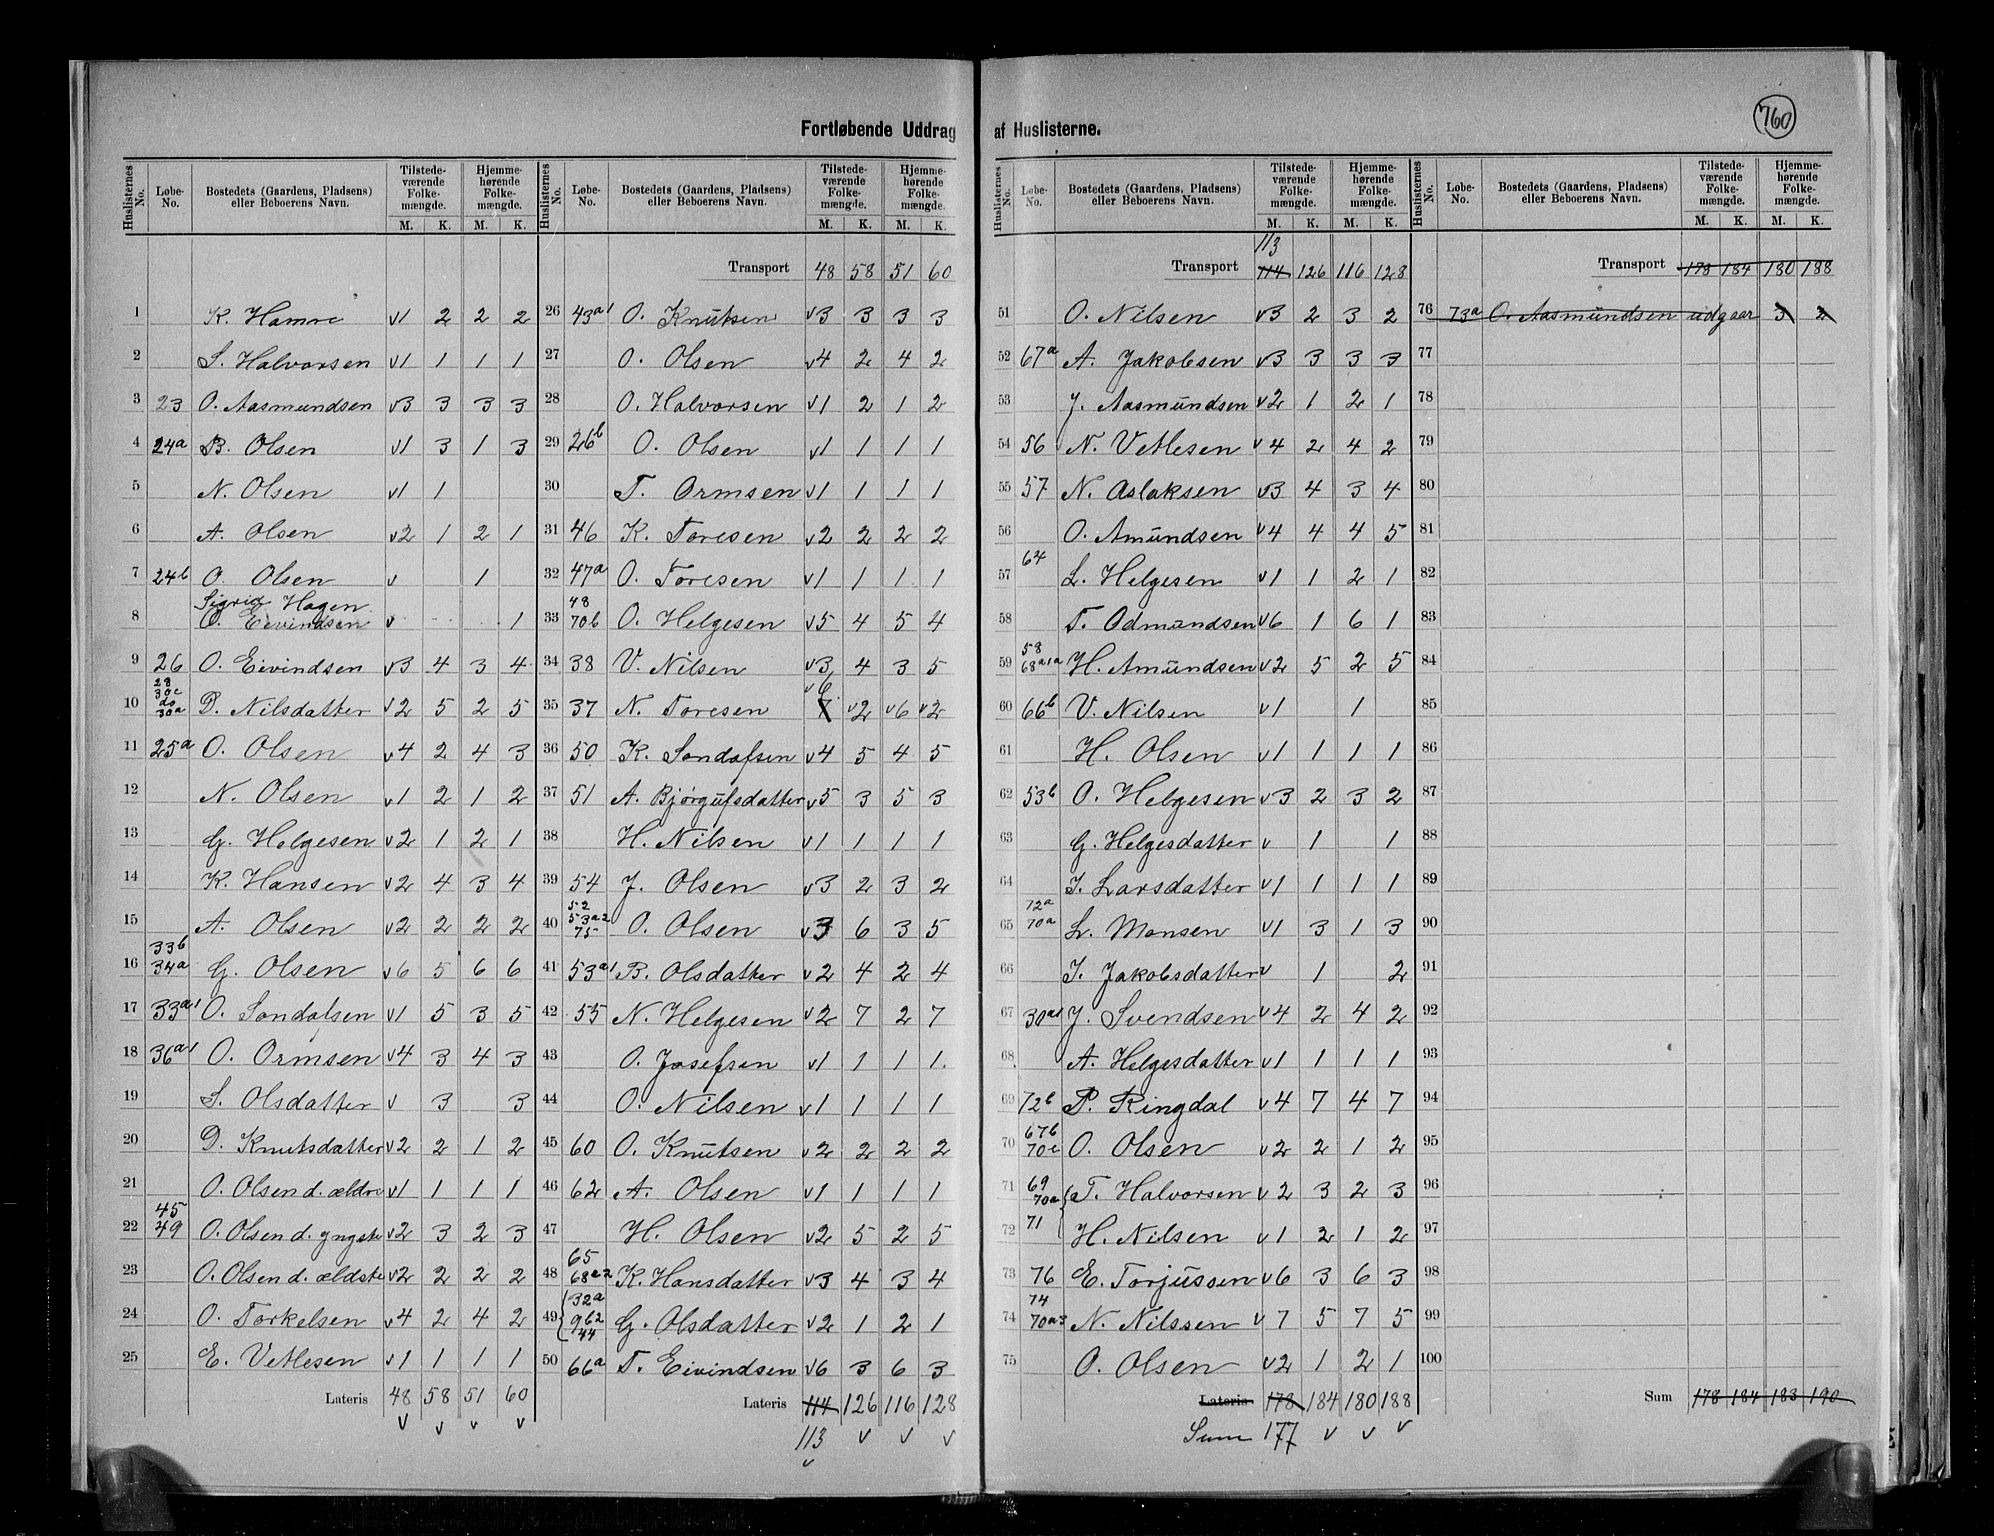 760
Fortløbende Uddrag af Huslisterne.
Huslisternes No. Løbe-No. Bostedets (Gaardens, Pladsens) eller Beboerens Navn. Tilstede-værende Folke-mængde. M. K. Hjemme-hørende Folke-mængde. M. K.
1 K. Hamre v1 2 2 2
2 S. Halvorsen v1 1 1 1
3 23 O. Aasmundsen v3 3 3 3
4 24a B. Olsen v1 3 1 3
5 N. Olsen v1 1
6 A. Olsen v2 1 2 1
7 24b O. Olsen v 1
Sigrid Hagen
8 O. Eivindsen v 1
9 26 O. Eivindsen v3 4 3 4
10 28 30c do 30a D. Nilsdatter v2 5 2 5
11 25a O. Olsen v4 2 4 3
12 N. Olsen v1 2 1 2
13 G. Helgesen v2 1 2 1
14 K. Hansen v2 4 3 4
15 A. Olsen v2 2 2 2
16 33b 34a G. Olsen v6 5 6 6
17 33a1 O. Sondalsen v1 5 3 5
18 36a1 O. Ormsen v4 3 4 3
19 S. Olsdatter v 3 3
20 D. Knutsdatter v2 2 1 2
21 O. Olsen d. ældre v1 1 1 1
22 45 49 O. Olsen d. yngste v2 3 2 3
23 O. Olsen d. ældste v2 2 2 2
24 O. Torkelsen v4 2 4 2
25 E. Vetlesen v1 1 1 1
Lateris 48 58 51 60
v v v v
Huslisternes No. Løbe-No. Bostedets (Gaardens, Pladsens) eller Beboerens Navn. Tilstede-værende Folke-mængde. M. K. Hjemme-hørende Folke-mængde. M. K.
Transport 48 58 51 60
26 43a1 O. Knutsen v3 3 3 3
27 O. Olsen v4 2 4 2
28 O. Halvorsen v1 2 1 2
29 26b O. Olsen v1 1 1 1
30 T. Ormsen v1 1 1 1
31 46 K. Toresen v2 2 2 2
32 47a O. Toresen v1 1 1 1
33 48 70b O. Helgesen v5 4 5 4
34 38 V. Nilsen v3 4 3 5
v6
35 37 N. Toresen 7 v2 v6 v2
36 50 K. Sondafsen v4 5 4 5
37 51 A. Bjørgufsdatter v5 3 5 3
38 H. Nilsen v1 1 1 1
39 54 J. Olsen v3 2 3 2
40 52 53a2 75 O. Olsen v3 6 3 5
41 53a1 B. Olsdatter v2 4 2 4
42 55 N. Helgesen v2 7 2 7
43 O. Josefsen v1 1 1 1
44 O. Nilsen v1 1 1 1
45 60 O. Knutsen v2 2 2 2
46 62 A. Olsen v1 1 1 1
47 H. Olsen v2 5 2 5
48 65 68a2 K. Hansdatter v3 4 3 4
49 32a 962 44 G. Olsdatter v2 1 2 1
50 66a T. Eivindsen v6 3 6 3
Lateris 114 126 116 128
113 v v v
v
Huslisternes No. Løbe-No. Bostedets (Gaardens, Pladsens) eller Beboerens Navn. Tilstede-værende Folke-mængde. M. K. Hjemme-hørende Folke-mængde. M. K.
113
Transport 114 126 116 128
51 O. Nilsen v3 2 3 2
52 67a A. Jakobsen v3 3 3 3
53 J. Aasmundsen v2 1 2 1
54 56 N. Vetlesen v4 2 4 2
55 57 N. Aslaksen v3 4 3 4
56 O. Amundsen v4 4 4 5
57 64 L. Helgesen v1 1 2 1
58 T. Odmundsen v6 1 6 1
59 58 68a1a H. Amundsen v2 5 2 5
60 66b V. Nilsen v1 1
61 H. Olsen v1 1 1 1
62 53b O. Helgesen v3 2 3 2
63 G. Helgesdatter v 1 1
64 I. Larsdatter v1 1 1 1
65 72a 70a L. Monsen v1 3 1 3
66 I. Jakobsdatter v 1 2
67 30a1 J. Svendsen v4 2 4 2
68 A. Helgesdatter v1 1 1 1
69 72b P. Ringdal v4 7 4 7
70 67b 70c O. Olsen v2 2 1 2
71 69 70a T. Halvorsen v2 3 2 3
72 71 H. Nilsen v1 2 1 2
73 76 E. Torjussen v6 3 6 3
74 74 70a3 N. Nilssen v7 5 7 5
75 O. Olsen v2 1 2 1
Lateris 178 184 180 188
Sum 177 v v v
Huslisternes No. Løbe-No. Bostedets (Gaardens, Pladsens) eller Beboerens Navn. Tilstede-værende Folke-mængde. M. K. Hjemme-hørende Folke-mængde. M. K.
Transport 178 184 180 188
76 73a O. Aasmundsen udgaar 3 2
77
78
79
80
81
82
83
84
85
86
87
88
89
90
91
92
93
94
95
96
97
98
99
100
Sum 178 184 183 190